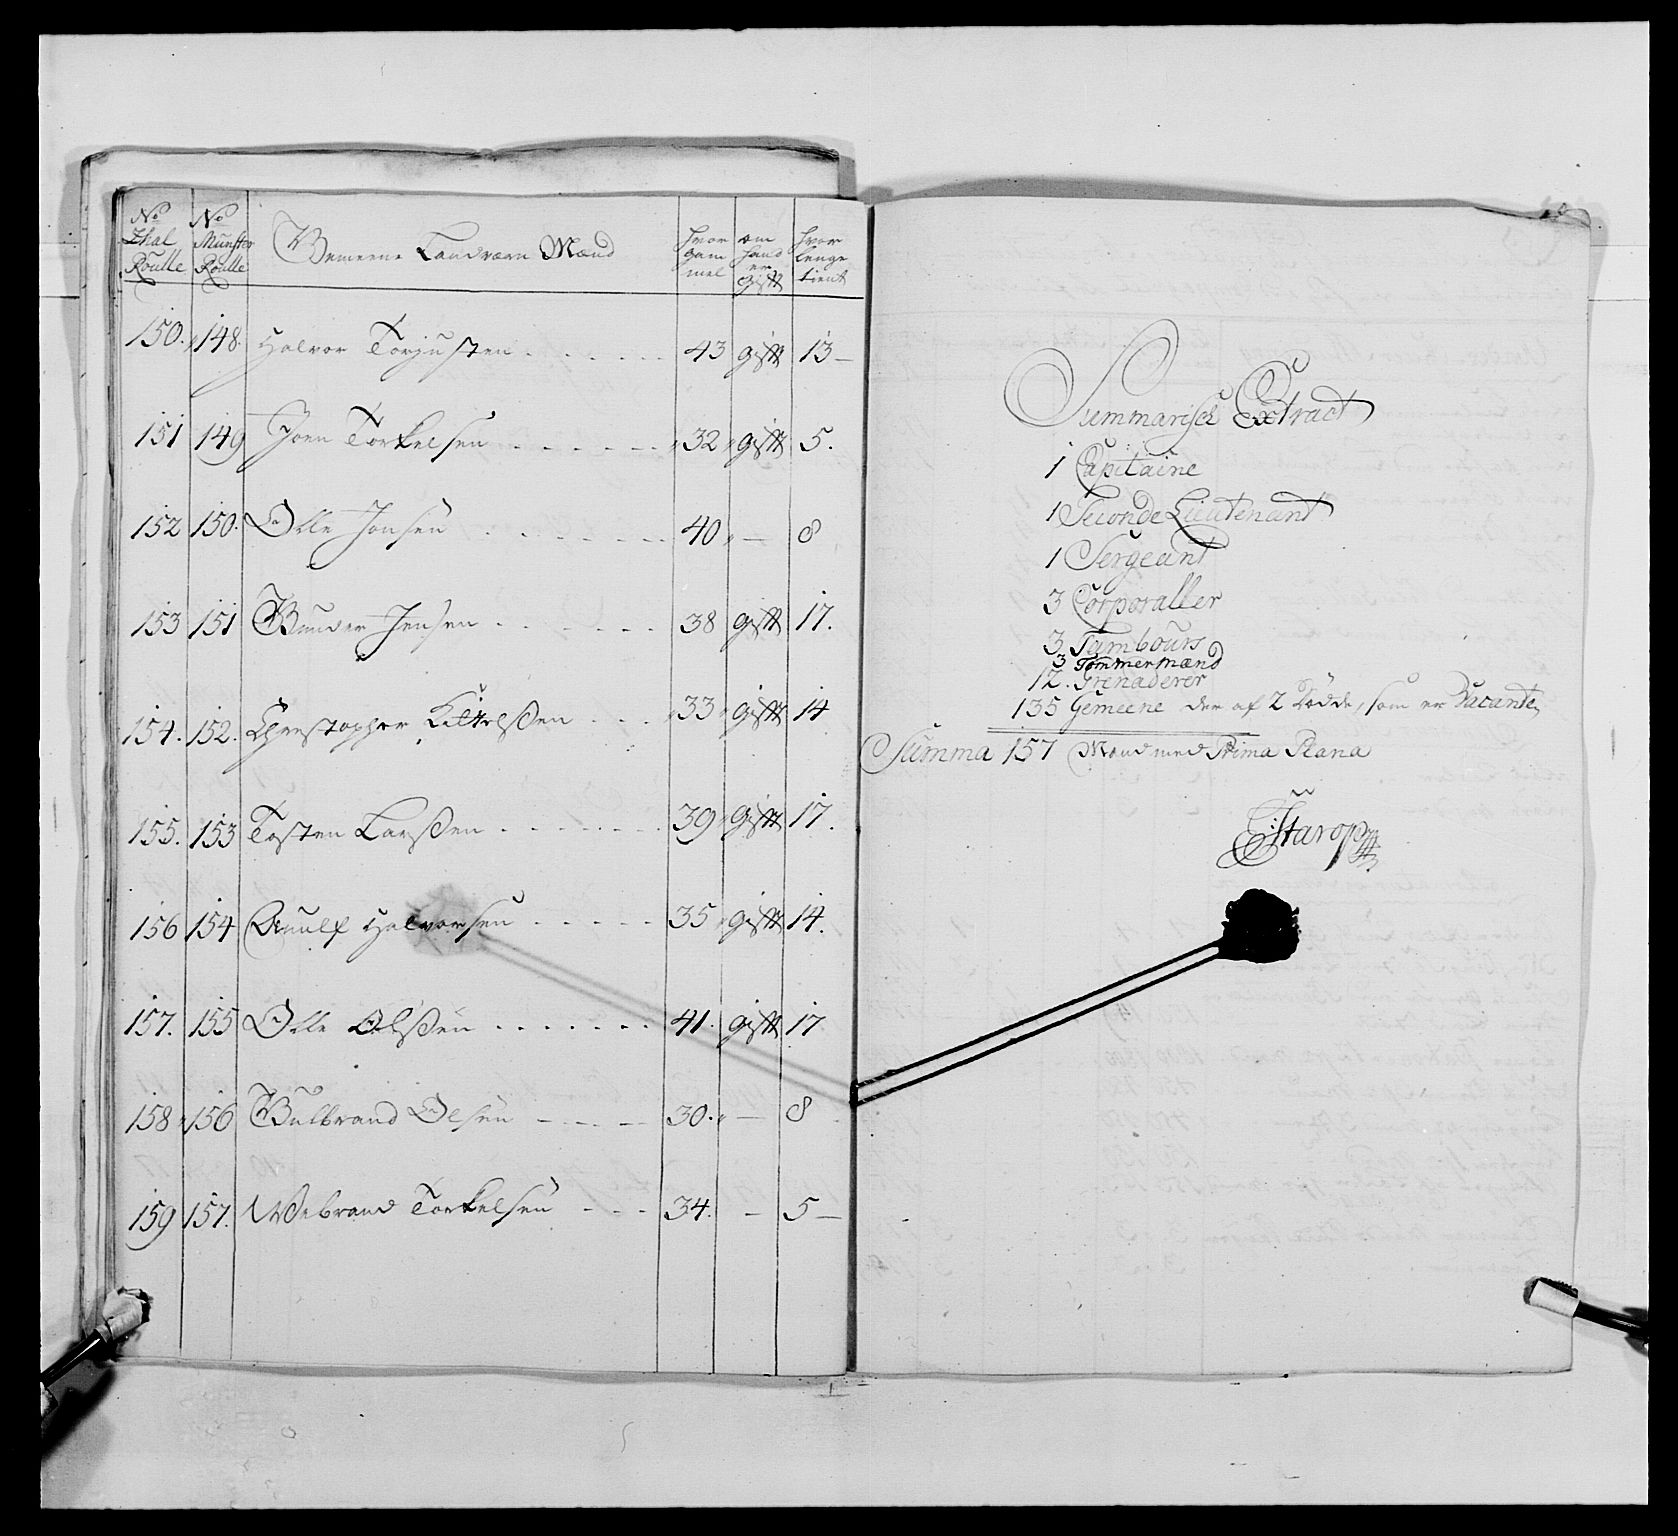 No Zhal Roulle No Munster Roulle Gemeene Landværn Mænd hvor gam mel om hand er gift hvor lenge tient
150. 148. Halvor Torjusten 43 gift 13
151 149 Joen Torkelsen 32 gift 5.
152 150. Olle Jonsen 40 — 8
153 151 Gunder Jensen 38 gift 17.
154. 152. Christopher Kittelßen 33 gift 14
155. 153 Tosten Larßen 39 gift 17.
156 154 Anulf Halvorsen 35 gift 14.
157. 155 Olle Olßen 41. gift 17
158 156 Gulbrand Olsen 30. — 8
159 157. Webrand Torkelsen 34. — 5
Summarisch Extract
1 Capitaine
1 Seconde Lieutenant
1 Sergeant
3 Corporaller
3 Tambours
3 Tømmermænd
12. Grenaderer
135 Gemeene der af 2 dødde, som er Vacante
Summa 157 Mand med Prima Plana